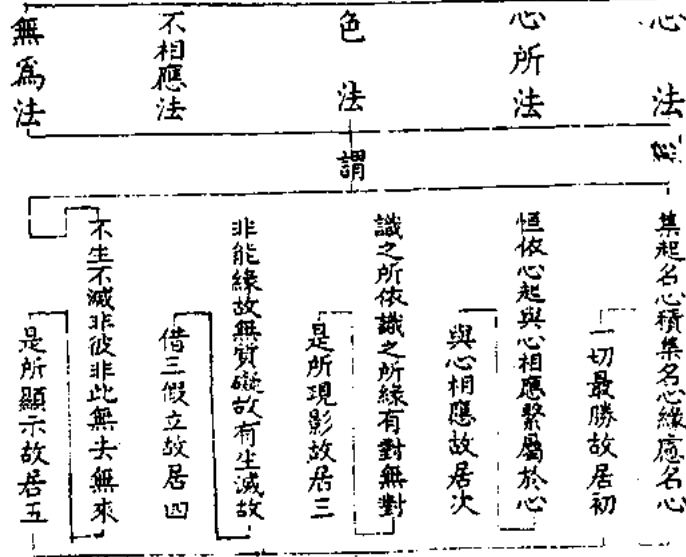 心法
心所法
色法
不相應法
無爲法
謂
集起名心積集名心緣慮名心
一切最勝故居初
恒依心起與心相應繫屬於心
與心相應故居次
識之所依識之所緣有對無對
是所現影故居三
非能緣故無質礙故有生滅故
借三假立故居四
不生不滅非彼非此無去無來
是所顯示故居五